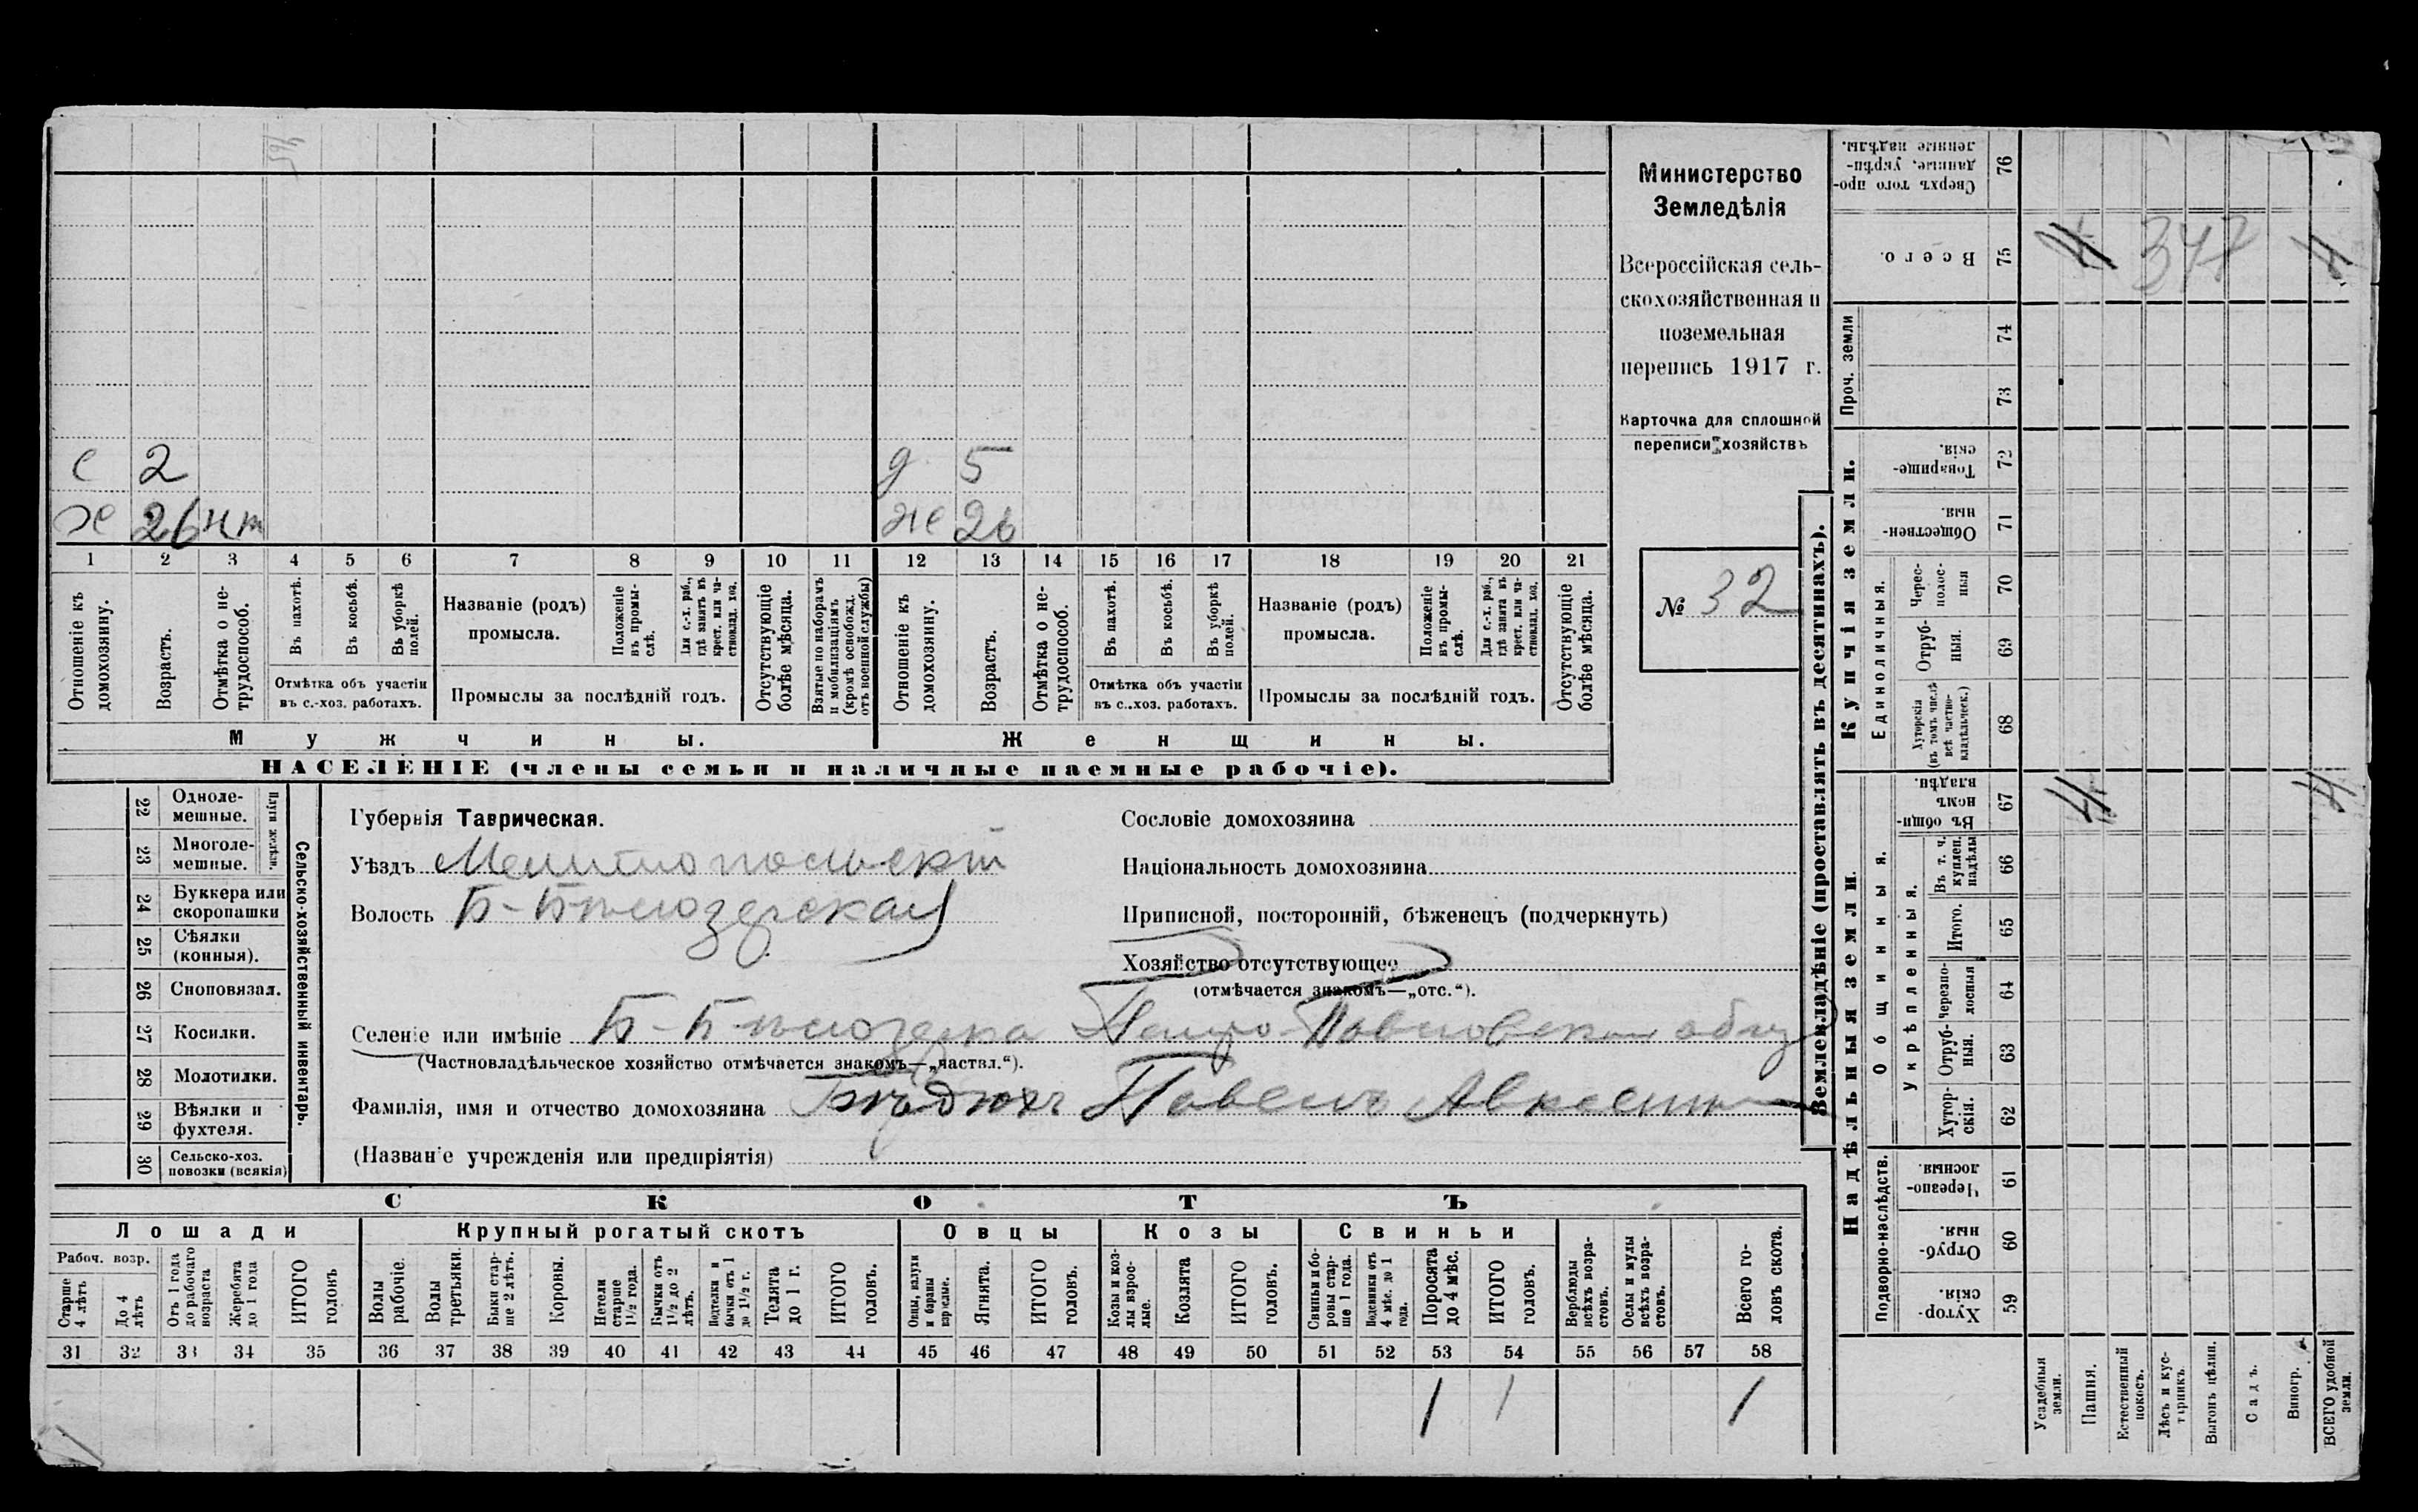 Министерство
Земледѣлія
Всероссійская сель-
скохозяйственная и
поземельная
перепись 1917 г.
Карточка для сплошной
переписи хозяйствъ
№ 32
с 2 д 5
х 26 нт же 26
1 2 3 4 5 6 7 8 9 10 11 12 13 14 15 16 17 18 19 20 21
Отношеніе къ домохозяину.
Возрастъ.
Отмѣтка о не-трудоспособ.
Въ пахотѣ.
Въ косьбѣ.
Въ уборкѣ полей.
Отмѣтка объ участіи
въ с.-хоз. работахъ.
Названіе (родъ)
промысла.
Положеніе въ промы-слѣ.
Для с.-х. раб., гдѣ занятъ въ крест. или ча-стновлад. хоз.
Промыслы за послѣдній годъ.
Отсутствующіе болѣе мѣсяца.
Взятые по наборамъ и мобилизаціямъ (кромѣ освобожд. отъ военной службы)
Отношеніе къ домохозяину.
Возрастъ.
Отмѣтка о не-трудоспособ.
Въ пахотѣ.
Въ косьбѣ.
Въ уборкѣ полей.
Отмѣтка объ участіи
въ с.-хоз. работахъ.
Названіе (родъ)
промысла.
Положеніе въ промы-слѣ.
Для с.-х. раб., гдѣ занята въ крест. или ча-стновлад. хоз.
Промыслы за послѣдній годъ.
Отсутствующіе болѣе мѣсяца.
Мужчины.
Женщины.
НАСЕЛЕНІЕ (члены семьи и наличные наемные рабочіе).
Сельско-хозяйственный инвентарь.
Плуги желѣзн.
22 Одноле-мешные.
23 Многоле-мешные.
24 Буккера или скоропашки
25 Сѣялки (конныя).
26 Сноповязал.
27 Косилки.
28 Молотилки.
29 Вѣялки и фухтеля.
30 Сельско-хоз. повозки (всякія)
Губернія Таврическая.
Уѣздъ Мелитопольскій
Волость Б-Бѣлозерская
Сословіе домохозяина
Національность домохозяина
Приписной, посторонній, бѣженецъ (подчеркнуть)
Хозяйство отсутствующее
(отмѣчается знакомъ—„отс.“).
Селеніе или имѣніе Б-Бѣлозерка Петро-Павловское общ
(Частновладѣльческое хозяйство отмѣчается знакомъ—„частвл.“).
Фамилія, имя и отчество домохозяина Павелъ Авксент
(Названіе учрежденія или предпріятія)
СКОТЪ
Лошади
Рабоч. возр.
Старше 4 лѣтъ
До 4 лѣтъ
Отъ 1 года до рабочаго возраста
Жеребята до 1 года
ИТОГО головъ
Крупный рогатый скотъ
Волы рабочіе.
Волы третьяки.
Быки стар-ше 2 лѣтъ.
Коровы.
Нетели старше 1½ года.
Бычки отъ 1½ до 2 лѣтъ.
Подтелки и бычки отъ 1 до 1½ г.
Телята до 1 г.
ИТОГО головъ.
Овцы
Овцы, валухи и бараны взрослые.
Ягнята.
ИТОГО головъ.
Козы
Козы и коз-лы взрос-лые.
Козлята
ИТОГО головъ.
Свиньи
Свиньи и бо-ровы стар-ше 1 года.
Подсвинки отъ 4 мѣс. до 1 года.
Поросята до 4 мѣс.
ИТОГО головъ.
Верблюды всѣхъ возра-стовъ.
Ослы и мулы всѣхъ возра-стовъ.
Всего го-ловъ скота.
31 32 33 34 35 36 37 38 39 40 41 42 43 44 45 46 47 48 49 50 51 52 53 54 55 56 57 58
1 1 1
Землевладѣніе (проставлять въ десятинахъ).
Купчія земли.
Надѣльныя земли.
76 Сверхъ того про-данные, укрѣп-ленные надѣлы.
75 Всего.
4 347 4
Проч. земли
74
73
72 Товарище-скія.
71 Обществен-ныя.
Единоличныя.
70 Черес-полос-ныя
69 Отруб-ныя.
68 Хуторскія (въ томъ числѣ всѣ частно-владѣльческ.)
Общинныя.
67 Въ общи-номъ владѣн.
4 4
Укрѣпленныя.
66 Въ т. ч. куплен. надѣлы
65 Итого.
64 Черезпо-лосныя
63 Отруб-ныя.
62 Хутор-скія.
Подворно-наслѣдств.
61 Черезпо-лосныя.
60 Отруб-ныя.
59 Хутор-скія.
Усадебныя земли.
Пашня.
Естественный покосъ.
Лѣсъ и кус-тарникъ.
Выгонъ цѣлин.
Садъ.
Виногр.
ВСЕГО удобной земли.